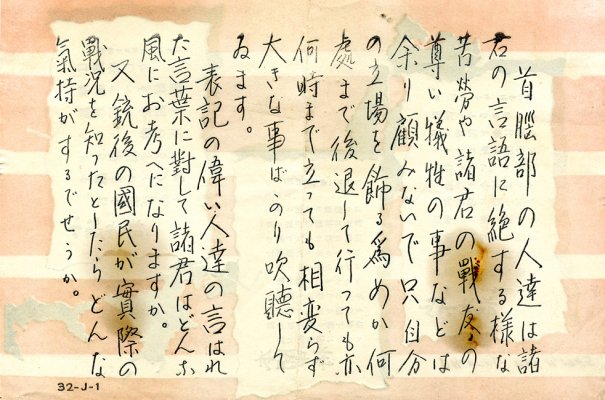 首脳部の人達は諸
君の言語に絶する様な
苦労や諸君の戰友々の
尊い犠牲の事などは
余り顧みないで只自分
の立場を飾る為めか何
處まで後退して行っても亦
何時まで立っても相変らず
大きな事ばかり吹聴して
ゐます。
表記の偉い人達の言はれ
た言葉に對して諸君はどんな
風にお考へになりますか。
又銃後の國民が實際の
戰况を知ったとしたらどんな
氣持がするでせうか。
32-J-1